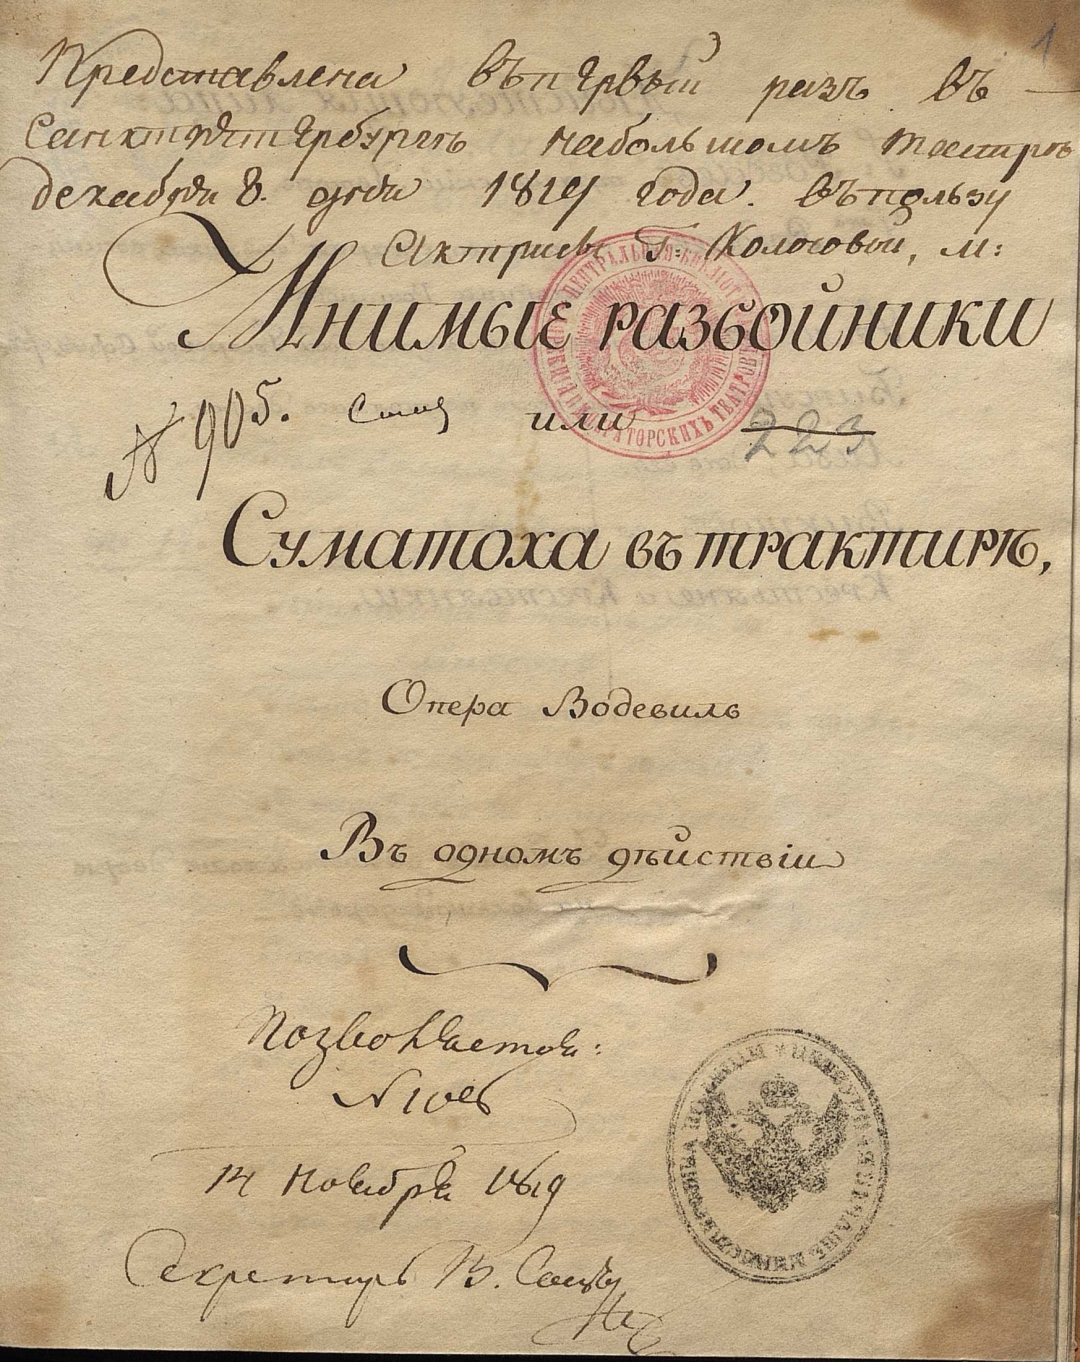 1
Представлена въ первый разъ въ
Санктпетербургѣ на большомъ театрѣ
декабря 8. дня 1819 года. въ пользу
Актрисы Г: Колосовой, м:
Мнимые разбойники
№ 905. или 223
Суматоха въ трактирѣ,
Опера Водевиль
Въ одномъ дѣйствіи
Позволяется:
14 Ноября 1819
Секретарь В.
ЦЕНТРАЛЬНАЯ БИБЛІОТЕКА ИМПЕРАТОРСКИХЪ ТЕАТРОВЪ